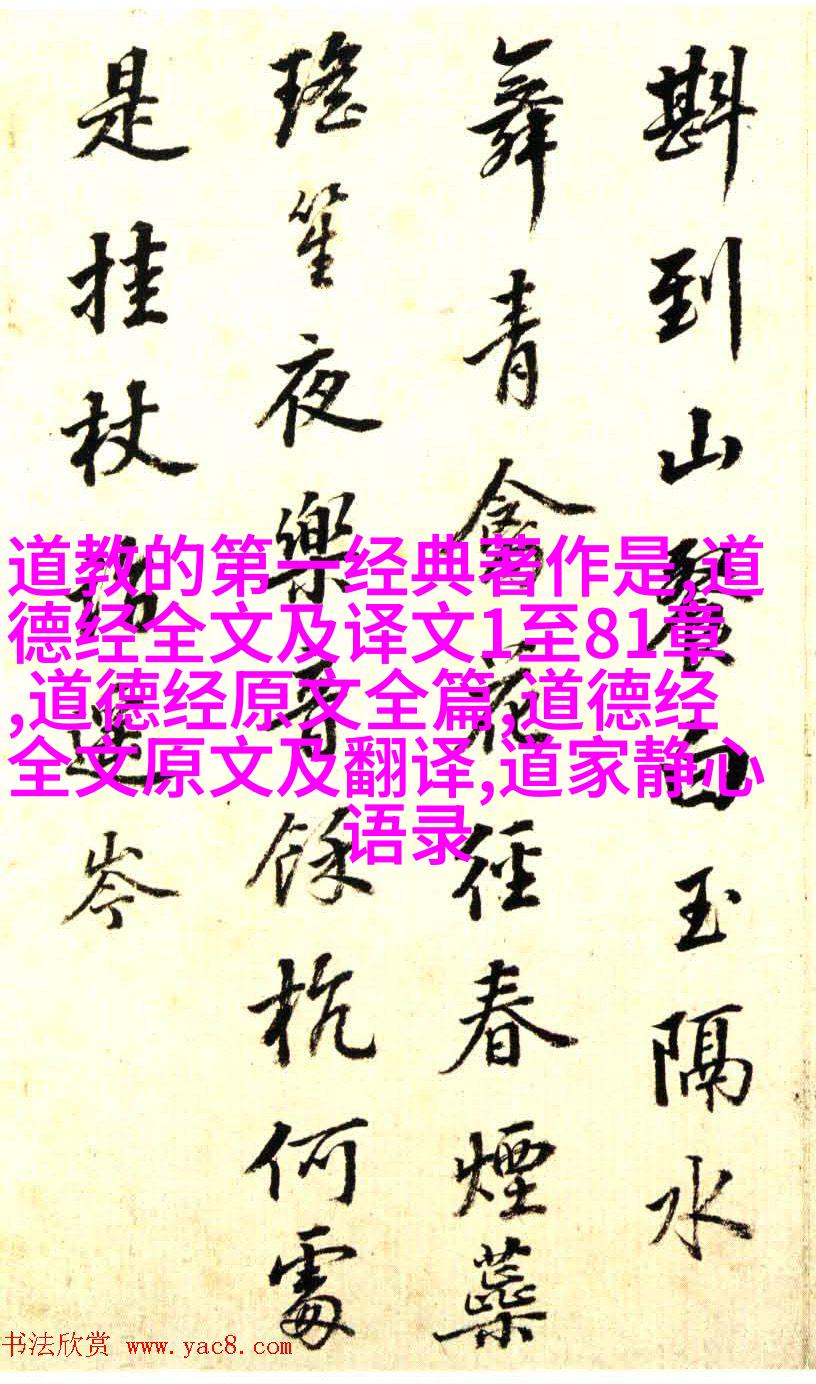 斟到山餐白玉隔水
舞青禽花徑春煙蘂
瑤笙夜樂尊餘杭何處
是挂杖岑
道教的第一经典著作是,道
德经全文及译文1至81章
,道德经原文全篇,道德经
全文原文及翻译,道家静心
语录
书法欣赏 www.yac8.com